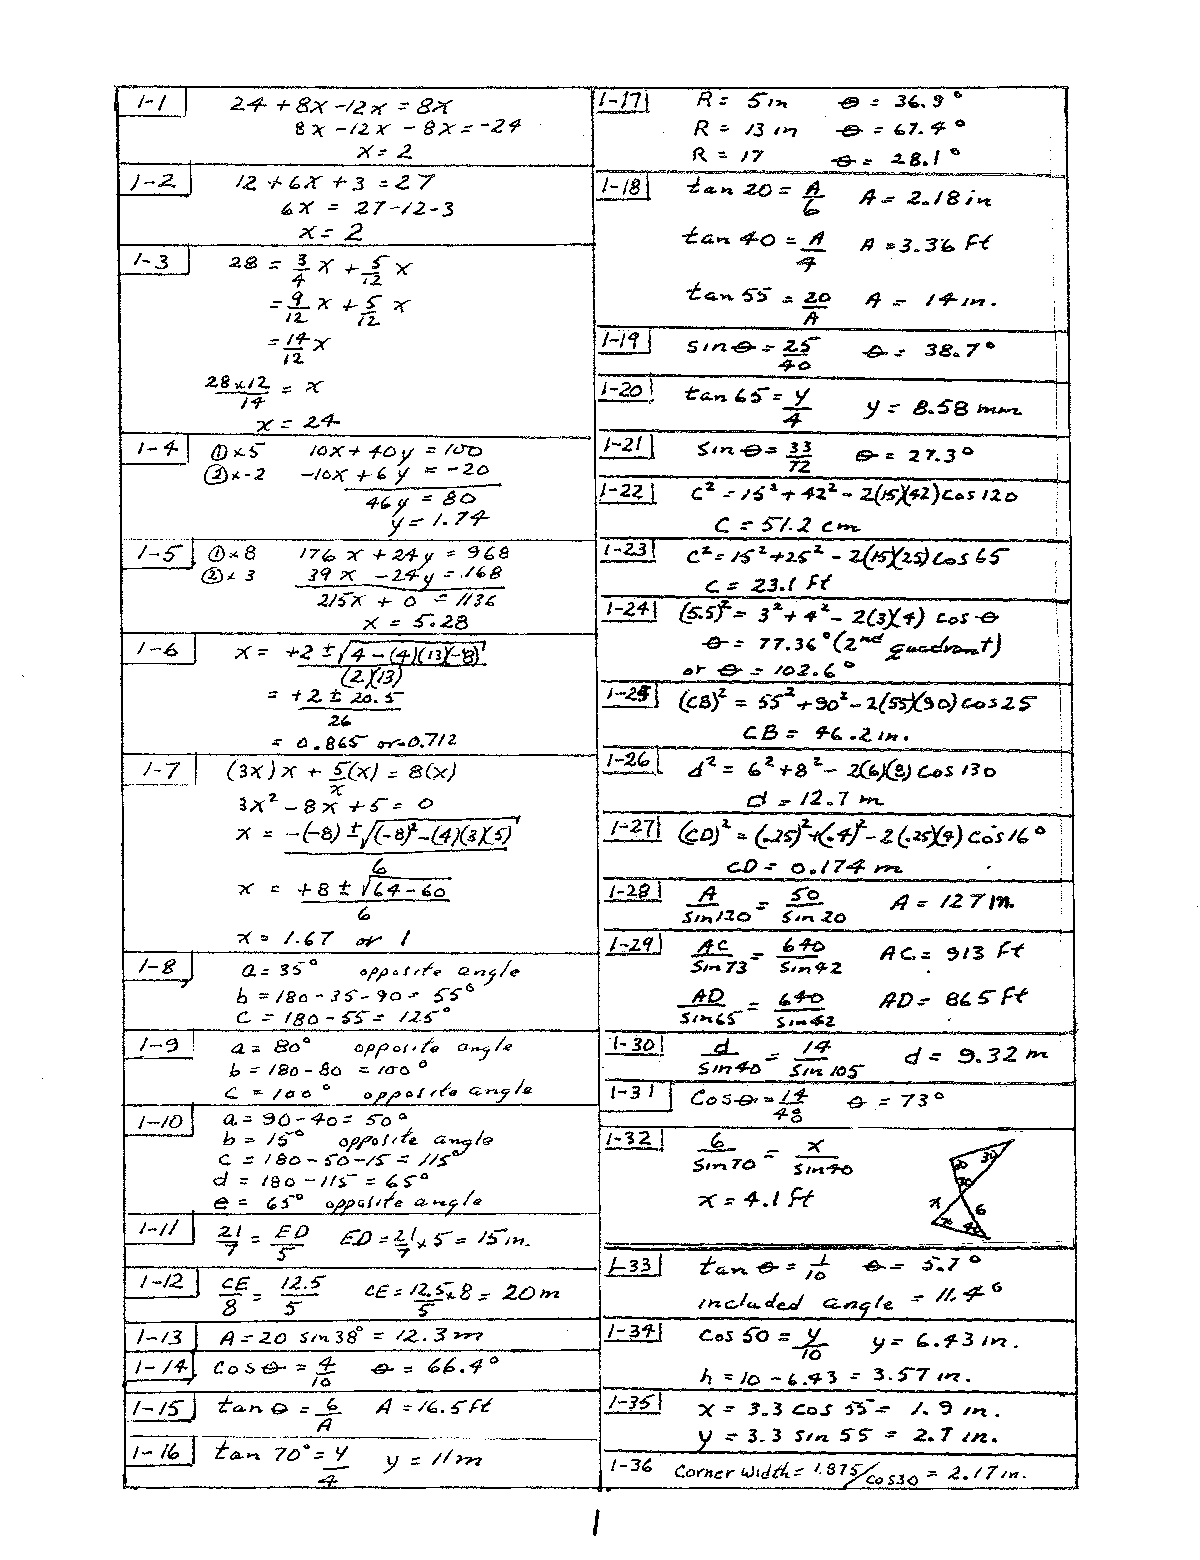 1-1
24 + 8x - 12x = 8x
8x - 12x - 8x = -24
x = 2
1-2
12 + 6x + 3 = 27
6x = 27-12-3
x = 2
1-3
28 = 3/4 x + 5/12 x
= 9/12 x + 5/12 x
= 14/12 x
28x12/14 = x
x = 24
1-4
① x 5 10x + 40y = 100
② x -2 -10x + 6y = -20
46y = 80
y = 1.74
1-5
① x 8 176x + 24y = 968
② x 3 39x - 24y = 168
215x + 0 = 1136
x = 5.28
1-6
x = +2 ± √4 - (4)(13)(-8) / (2)(13)
= +2 ± 20.5 / 26
= 0.865 or -0.712
1-7
(3x)x + 5/x (x) = 8(x)
3x² - 8x + 5 = 0
x = -(-8) ± √(-8)² - (4)(3)(5) / 6
x = +8 ± √64-60 / 6
x = 1.67 or 1
1-8
a = 35° opposite angle
b = 180 - 35 - 90 = 55°
c = 180 - 55 = 125°
1-9
a = 80° opposite angle
b = 180 - 80 = 100°
c = 100° opposite angle
1-10
a = 90 - 40 = 50°
b = 15° opposite angle
c = 180 - 50 - 15 = 115°
d = 180 - 115 = 65°
e = 65° opposite angle
1-11
21/7 = ED/5 ED = 21/7 x 5 = 15 in.
1-12
CE/8 = 12.5/5 CE = 12.5/5 x 8 = 20 m
1-13 A = 20 sin 38° = 12.3 m
1-14 cos θ = 4/10 θ = 66.4°
1-15 tan θ = 6/A A = 16.5 ft
1-16 tan 70° = y/4 y = 11 m
1-17
R = 5 in θ = 36.9°
R = 13 in θ = 67.4°
R = 17 θ = 28.1°
1-18
tan 20 = A/6 A = 2.18 in
tan 40 = A/4 A = 3.36 Ft
tan 55 = 20/A A = 14 in.
1-19
sin θ = 25/40 θ = 38.7°
1-20
tan 65 = y/4 y = 8.58 mm
1-21
sin θ = 33/72 θ = 27.3°
1-22
C² = 15² + 42² - 2(15)(42) cos 120
C = 51.2 cm
1-23
C² = 15² + 25² - 2(15)(25) cos 65
C = 23.1 Ft
1-24
(5.5)² = 3² + 4² - 2(3)(4) cos θ
θ = 77.36° (2nd quadrant)
or θ = 102.6°
1-25
(CB)² = 55² + 90² - 2(55)(90) cos 25
CB = 46.2 in.
1-26
d² = 6² + 8² - 2(6)(8) cos 130
d = 12.7 m
1-27
(CD)² = (.25)² + (.4)² - 2(.25)(4) cos 16°
CD = 0.174 m
1-28
A/sin 120 = 50/sin 20 A = 127 in.
1-29
AC/sin 73 = 640/sin 42 AC = 913 Ft
AD/sin 65 = 640/sin 42 AD = 865 Ft
1-30
d/sin 40 = 14/sin 105 d = 9.32 m
1-31
cos θ = 14/48 θ = 73°
1-32
6/sin 70 = x/sin 40
x = 4.1 ft
30
x
6
70
40
1-33
tan θ = 1/10 θ = 5.7°
included angle = 11.4°
1-34
cos 50 = y/10 y = 6.43 in.
h = 10 - 6.43 = 3.57 in.
1-35
x = 3.3 cos 55 = 1.9 in.
y = 3.3 sin 55 = 2.7 in.
1-36 Corner width = 1.875/cos30 = 2.17 in.
1